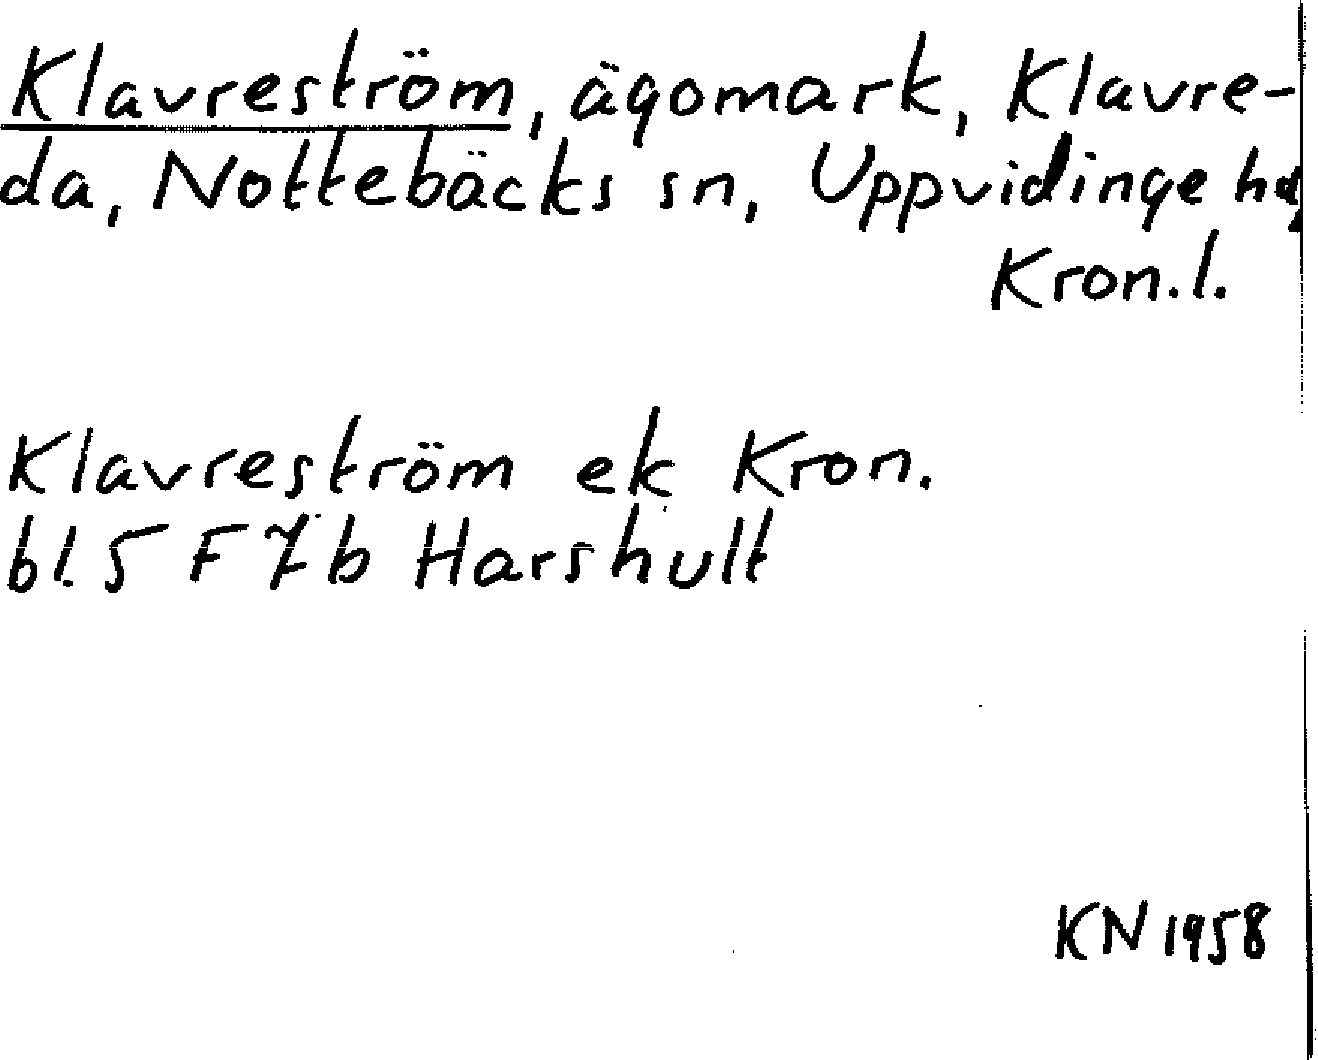 Klavreström, ägomark, Klavre-
da, Nottebäcks sn, Uppvidinge hd,
Kron.l.
Klavreström ek Kron.
bl. 5 F 7b Harshult
KN 1958